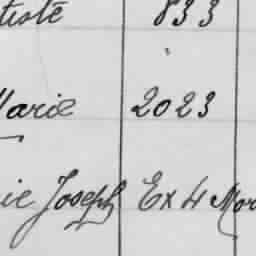 tiste 833
Marie 2023
ie Joseph Ex 4 Mor